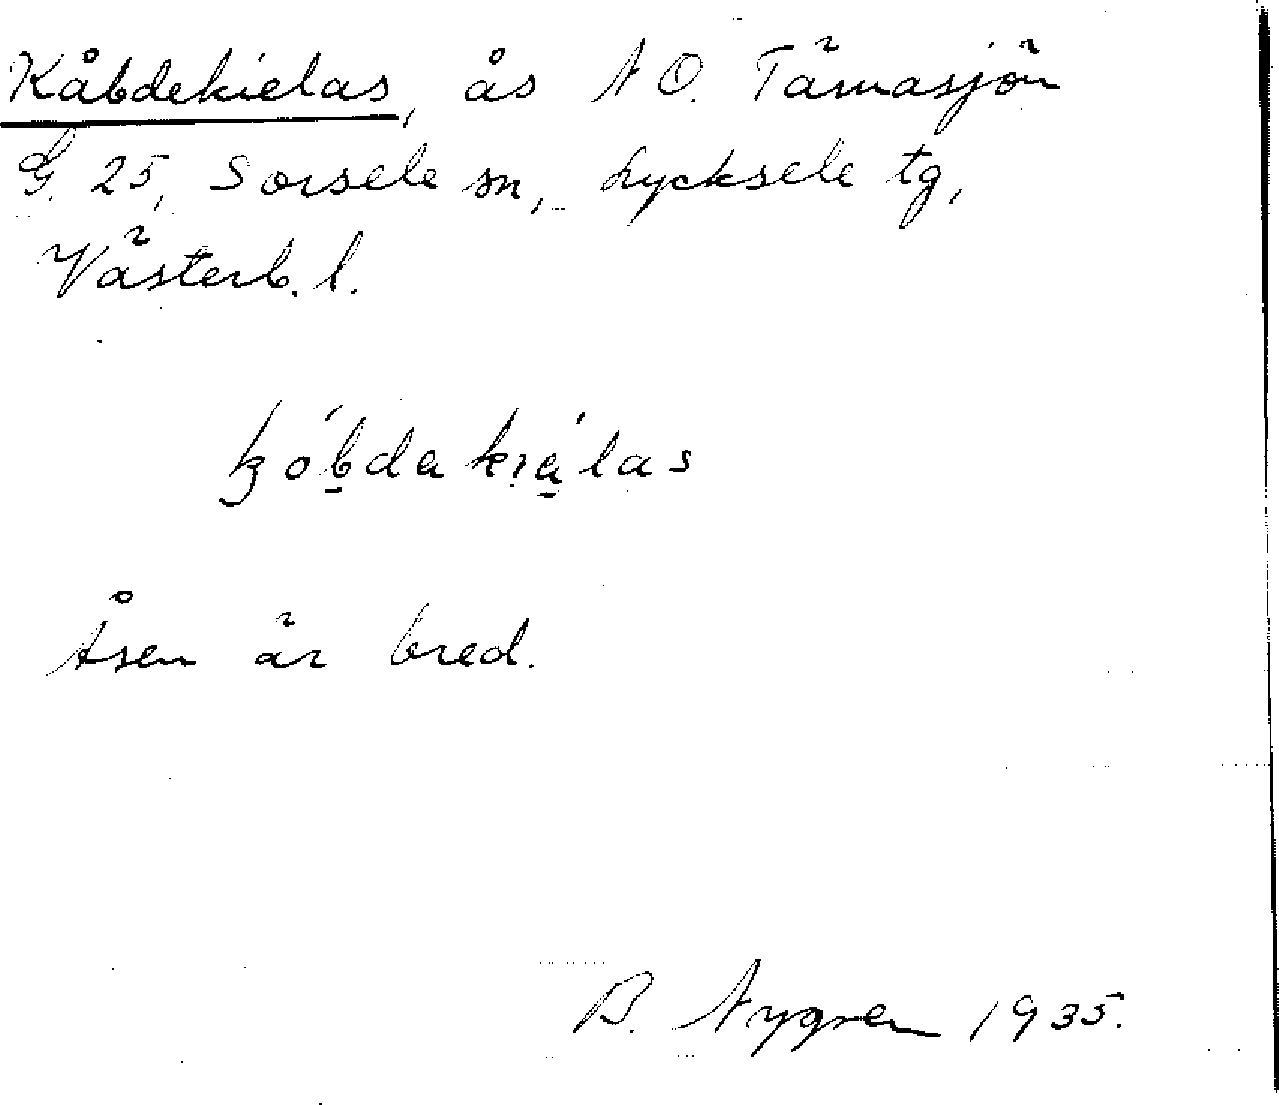 Kåbdekielas, ås N O. Tärnasjön
G. 25, Sorsele sn, Lycksele tg,
Västerb. l.
Åsen är bred.
B. Nygren 1935.